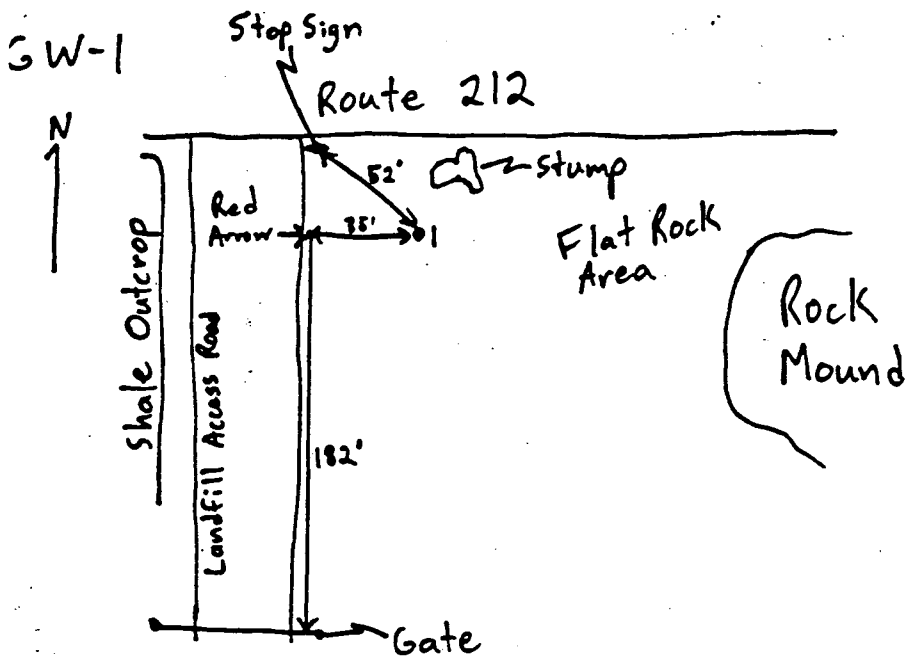 GW-1
Stop Sign
Route 212
N
52'
Stump
Red
Arrow
35'
1
Flat Rock
Area
Rock
Mound
Shale Outcrop
Landfill Access Road
182'
Gate